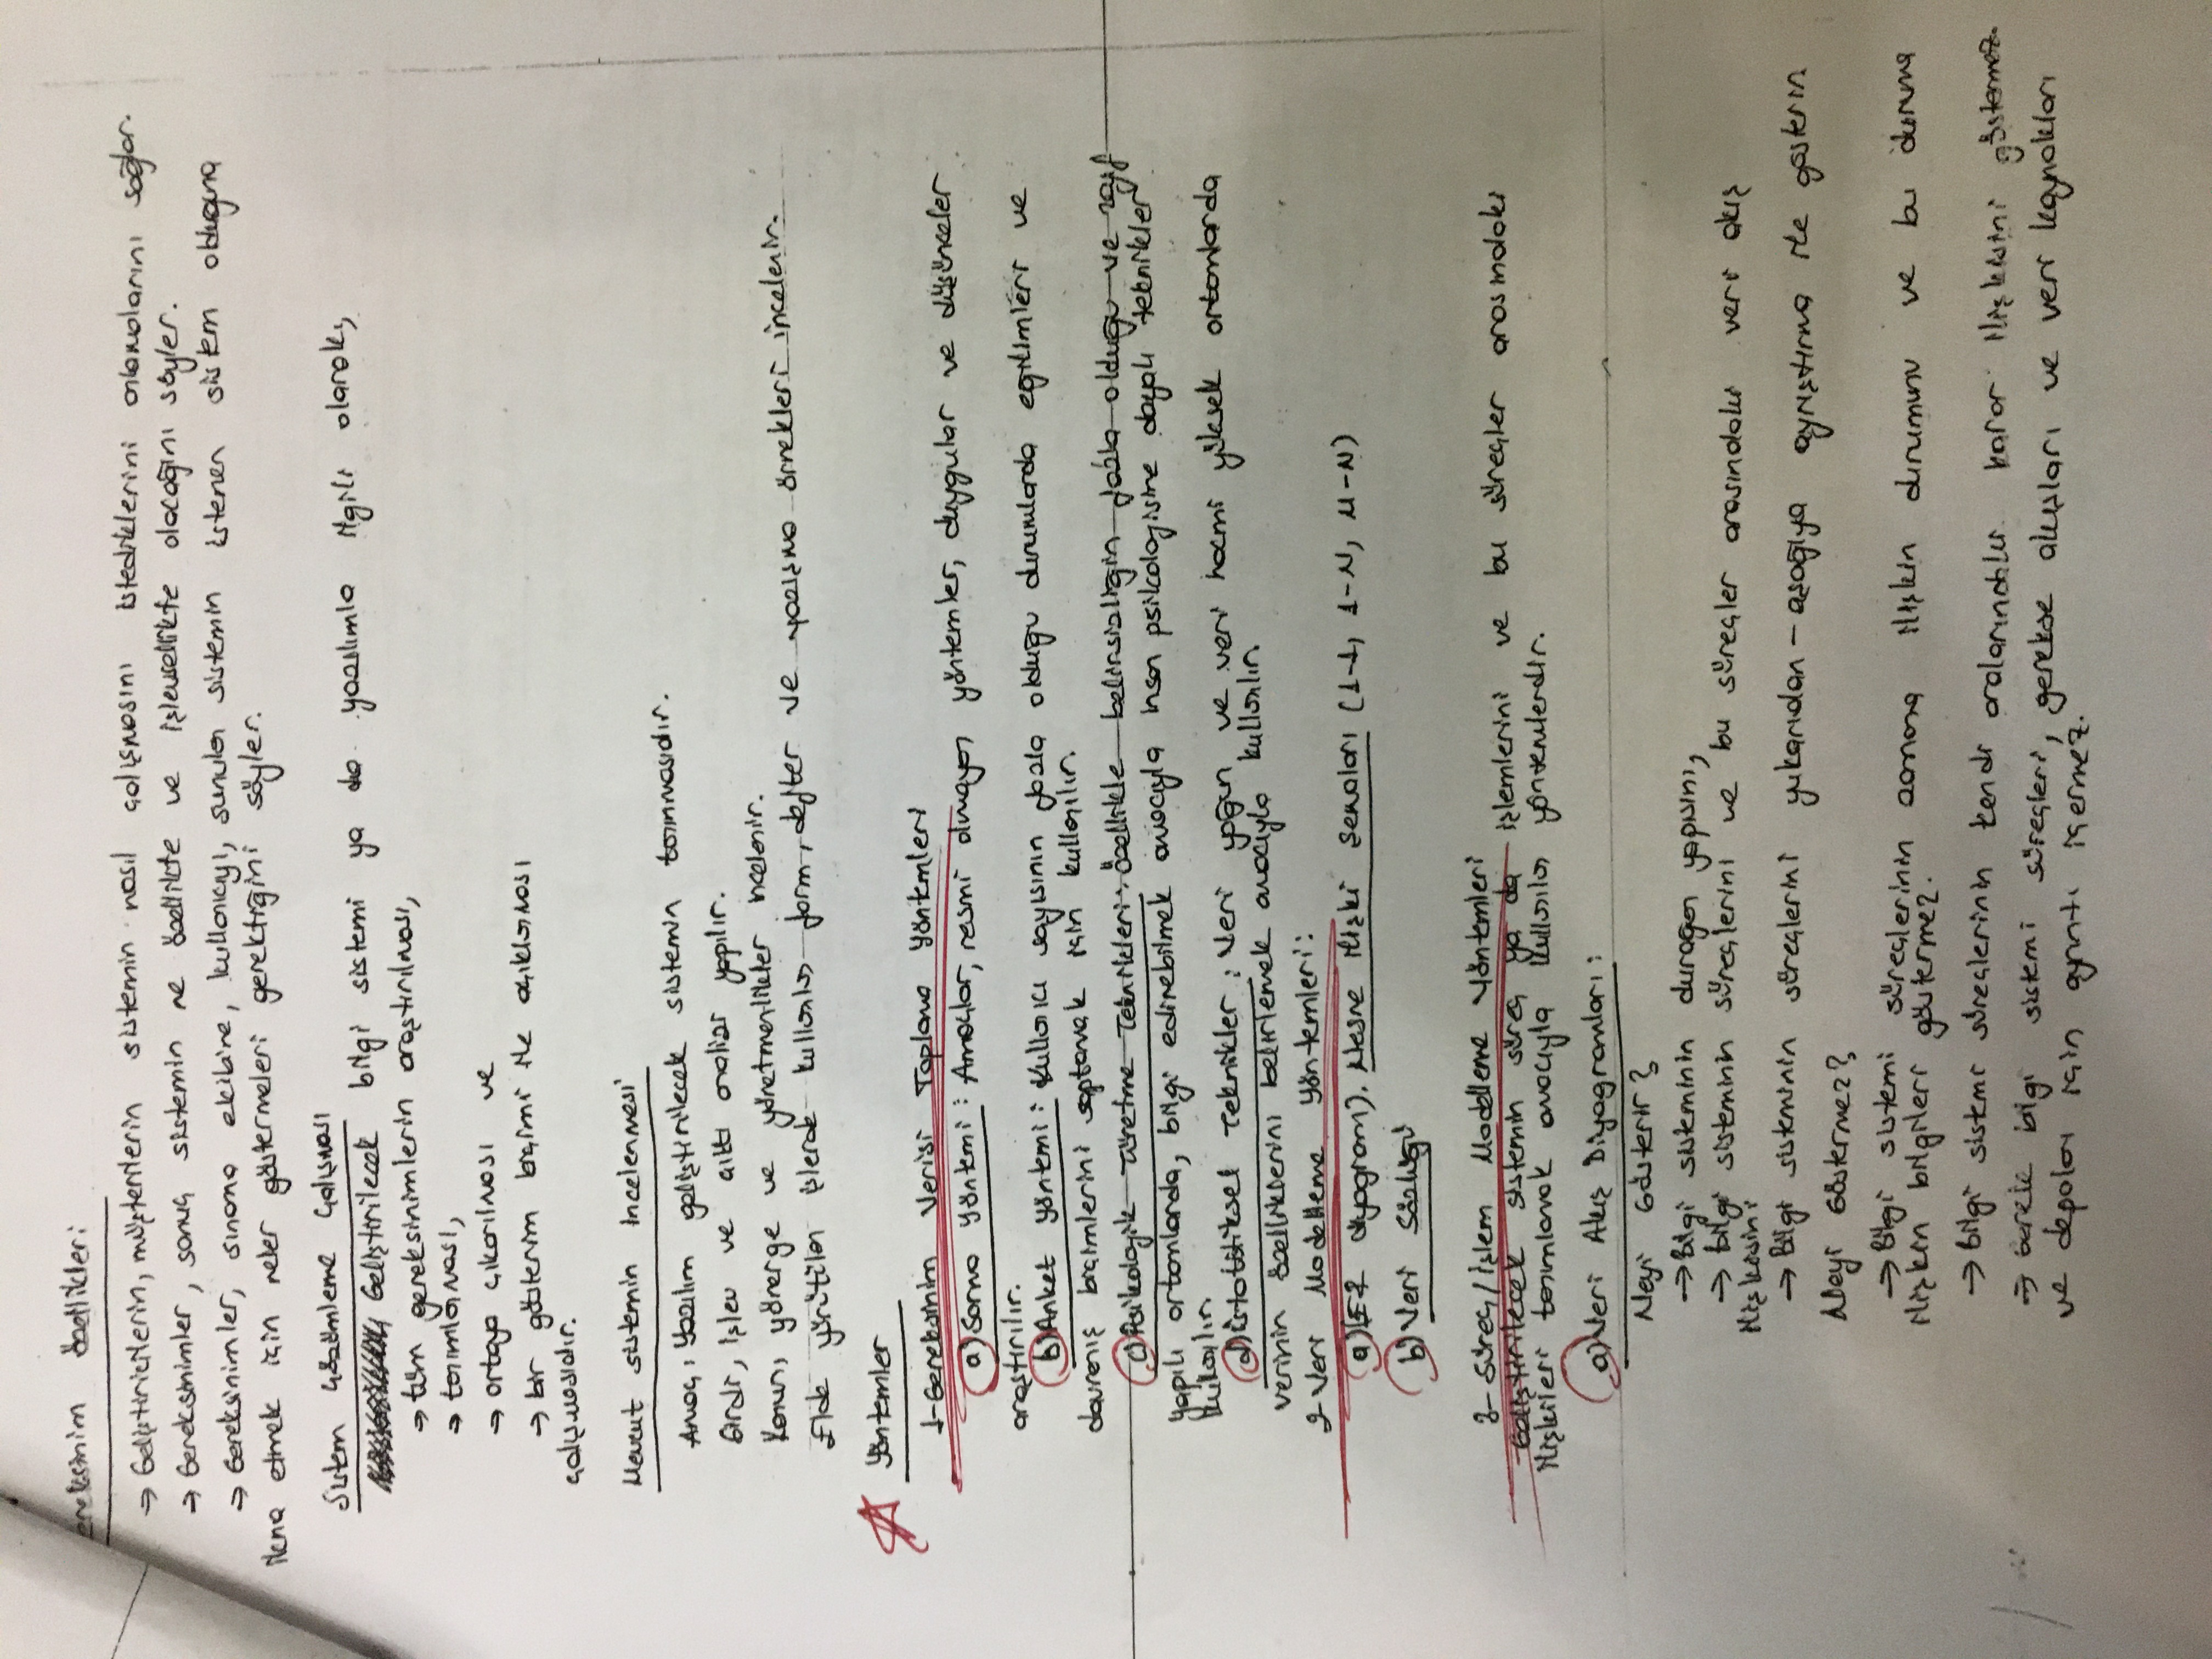 ereksinim özellikleri
→ Geliştiricilerin, müşterilerin sistemin nasıl çalışmasını istediklerini anlamalarını sağlar.
→ Gereksinimler, sonuç sistemin ne özellikte ve işlevsellikte olacağını söyler.
→ Gereksinimler, sınama ekibine, kullanıcıyı, sunulan sistemin istenen sistem olduğuna
ikna etmek için neler göstermeleri gerektiğini söyler.
Sistem Çözümleme Çalışması
Geliştirilecek bilgi sistemi ya da yazılımla ilgili olarak,
→ tüm gereksinimlerin araştırılması,
→ tanımlanması,
→ ortaya çıkarılması ve
→ bir gösterim biçimi ile açıklanması
çalışmasıdır.
Mevcut sistemin incelenmesi
Amaç, Yazılım geliştirilecek sistemin tanınmasıdır.
Girdi, işlev ve çıktı analizi yapılır.
Kanun, yönerge ve yönetmenlikler incelenir.
Elde yürütülen işlerde kullanılan form, defter ve yazışma örnekleri incelenir.
Yöntemler
1-Gereksinim Verisi Toplama Yöntemleri
a) Sorma Yöntemi: Amaçlar, resmi olmayan yöntemler, duygular ve düşünceler
araştırılır.
b) Anket Yöntemi: Kullanıcı sayısının fazla olduğu durumlarda eğilimleri ve
davranış biçimlerini saptamak için kullanılır.
c) Psikolojik Türetme Teknikleri: özellikle belirsizliğin fazla olduğu ve zayıf
yapılı ortamlarda, bilgi edinebilmek amacıyla insan psikolojisine dayalı teknikler
kullanılır.
d) İstatistiksel Teknikler: Veri yoğun ve veri hacmi yüksek ortamlarda
verinin özelliklerini belirlemek amacıyla kullanılır.
2-Veri Modelleme Yöntemleri:
a) (ER diyagram). Nesne ilişki Şemaları (1-1, 1-N, M-N)
b) Veri Sözlüğü
3- Süreç/İşlem Modelleme Yöntemleri
Geliştirilecek sistemin süreç ya da işlemlerini ve bu süreçler arasındaki
ilişkileri tanımlamak amacıyla kullanılan yöntemlerdir.
a) Veri Akış Diyagramları:
Neyi Gösterir?
→ Bilgi sisteminin durağan yapısını,
→ bilgi sisteminin süreçlerini ve bu süreçler arasındaki veri akış
ilişkisini
→ Bilgi sisteminin süreçlerini yukarıdan-aşağıya ayrıştırma ile gösterir.
Neyi Göstermez?
→ Bilgi sistemi süreçlerinin zamana ilişkin durumunu ve bu duruma
ilişkin bilgileri göstermez.
→ bilgi sistemi süreçlerinin kendi aralarındaki karar ilişkisini göstermez.
→ Gerek bilgi sistemi süreçleri, gerekse akışları ve veri kaynakları
ve depoları için ayrıntı içermez.